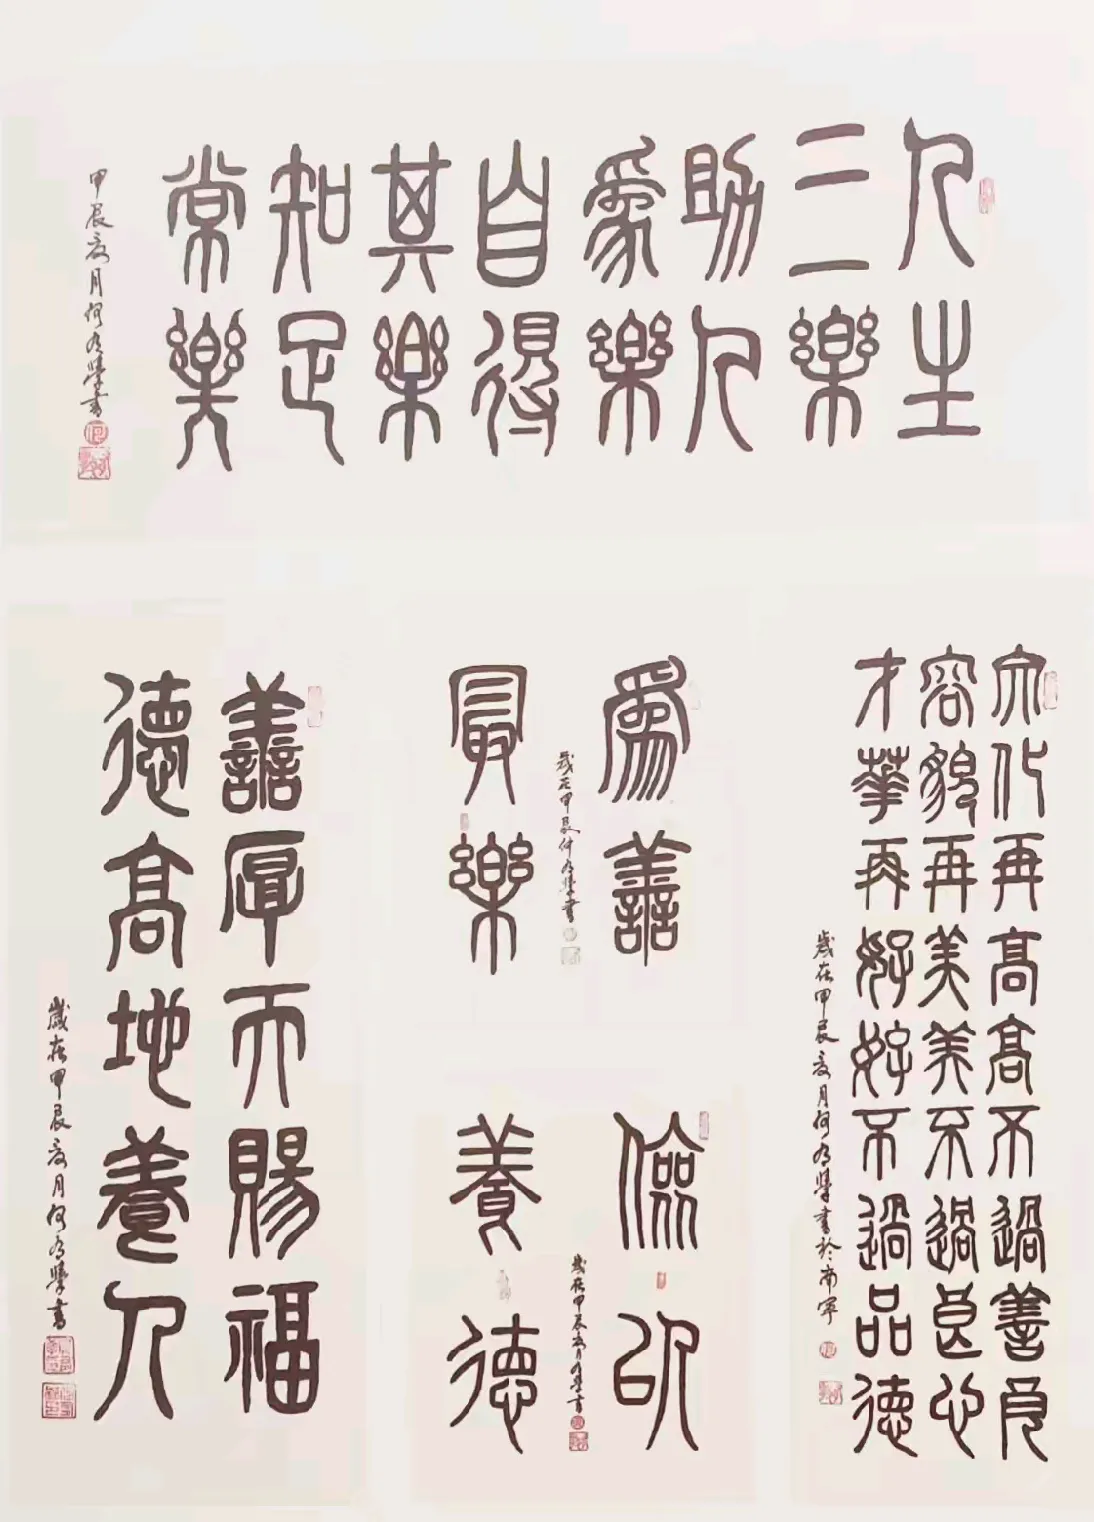 人生
三樂
助人
爲樂
自得
其樂
知足
常樂
甲辰夏月何學書
文化再高高不過善良
容貌再美美不過良心
才華再好好不過品德
歲在甲辰夏月何學書於南寧
爲善
最樂
歲在甲辰學書
儉以
養德
歲在甲辰學書
善厚天賜福
德高地養人
歲在甲辰夏月何學書